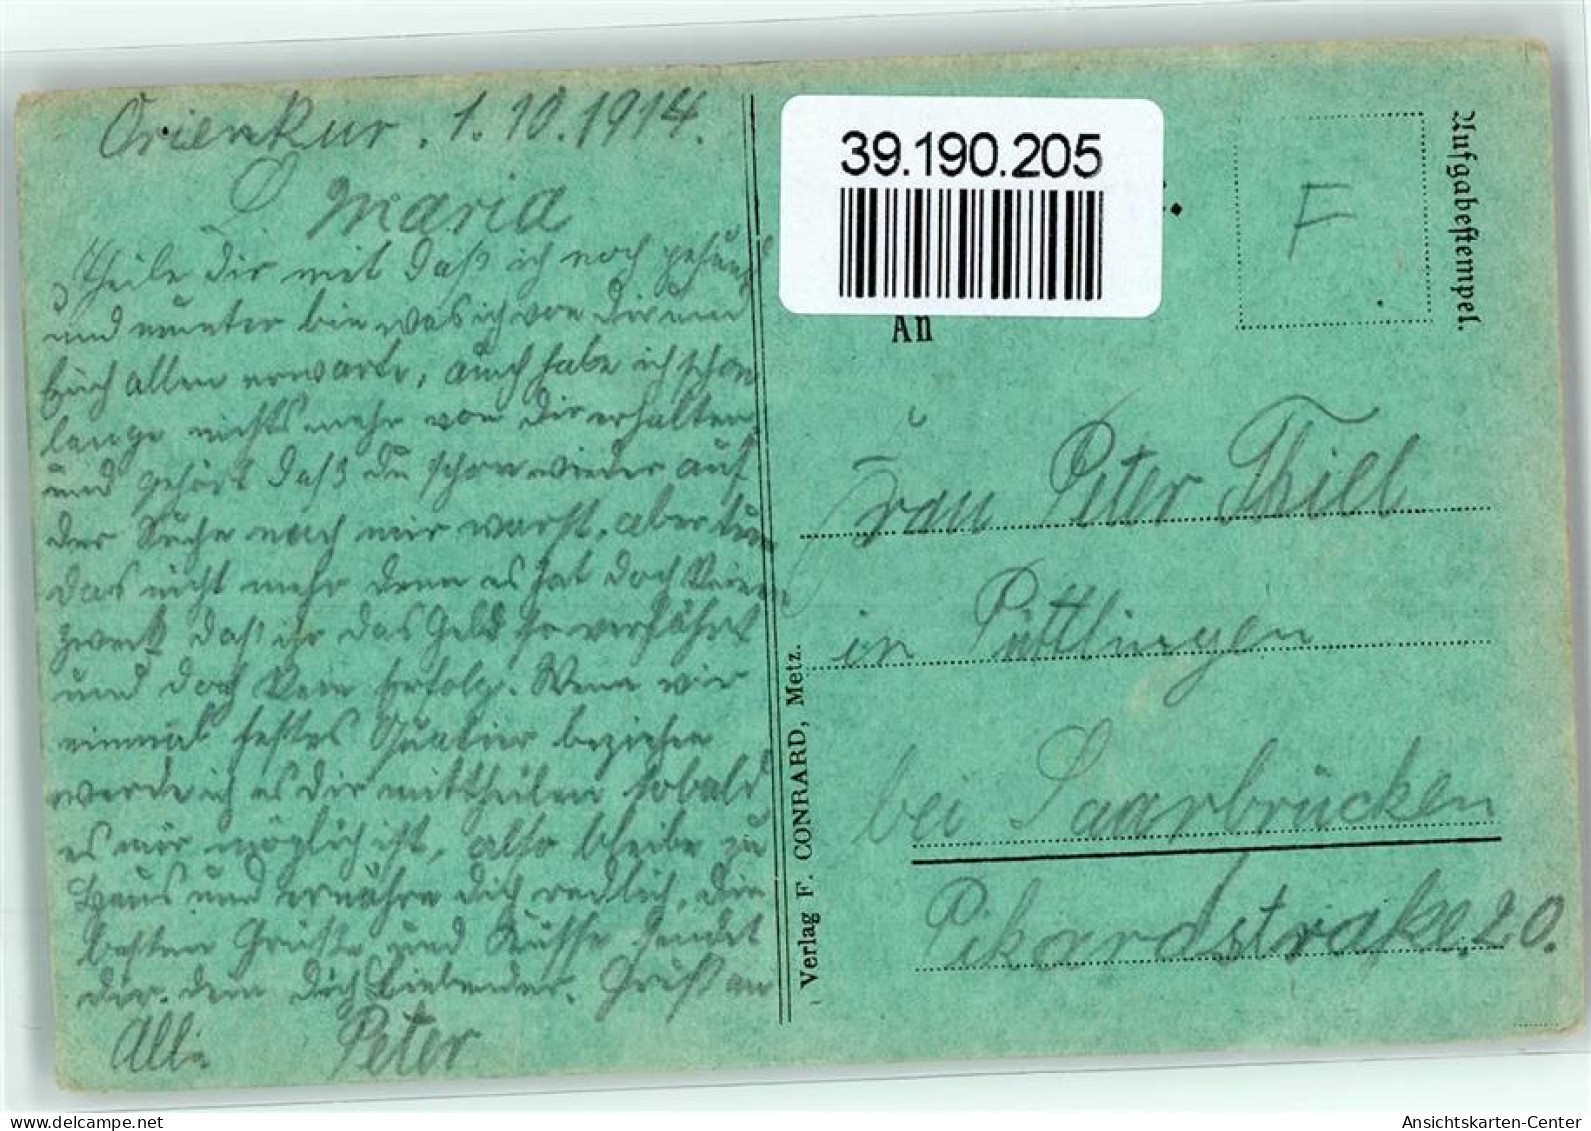 Orienkur. 1.10.1914.
L. Maria
Theile dir mit daß ich noch gesund
und munter bin was ich von dir und
Euch allen erwarte, auch habe ich schon
lange nichts mehr von dir erhalten
und gehört daß du schon wieder auf
der Suche nach mir warst, aber tue
das nicht mehr denn es hat doch kein
zweck daß ihr das Geld so verfährt
und doch kein Erfolg. Wenn wir
einmal festes Quatier beziehen
werde ich es dir mittheilen sobald
es mir möglich ist, also bleibe zu
Haus und ernähre dich redlich, die
besten Grüße und Küsse sendet
dir dein dich liebender. Gruß an
Alle Peter
39.190.205
Aufgabestempel.
F
An
Frau Peter Thill
in Püttlingen
bei Saarbrücken
Pikardstraße 20.
Verlag F. CONRARD, Metz.
delcampe.net
Ansichtskarten-Center